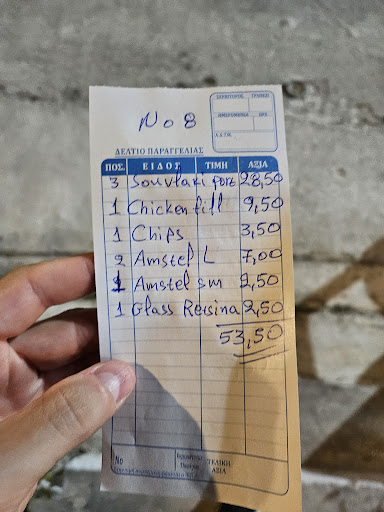 ΣΕΡΒΙΤΟΡΟΣ ΤΡΑΠΕΖΙ
ΗΜΕΡΟΜΗΝΙΑ ΩΡΑ
No 8
ΔΕΛΤΙΟ ΠΑΡΑΓΓΕΛΙΑΣ
ΠΟΣ. ΕΙΔΟΣ ΤΙΜΗ ΑΞΙΑ
3 Souvlaki porz 28,50
1 Chicken fill 9,50
1 Chips 3,50
2 Amstel L 7,00
1 Amstel sm 2,50
1 Glass Retsina 2,50
53,50
No ΤΕΛΙΚΗ
ΑΞΙΑ